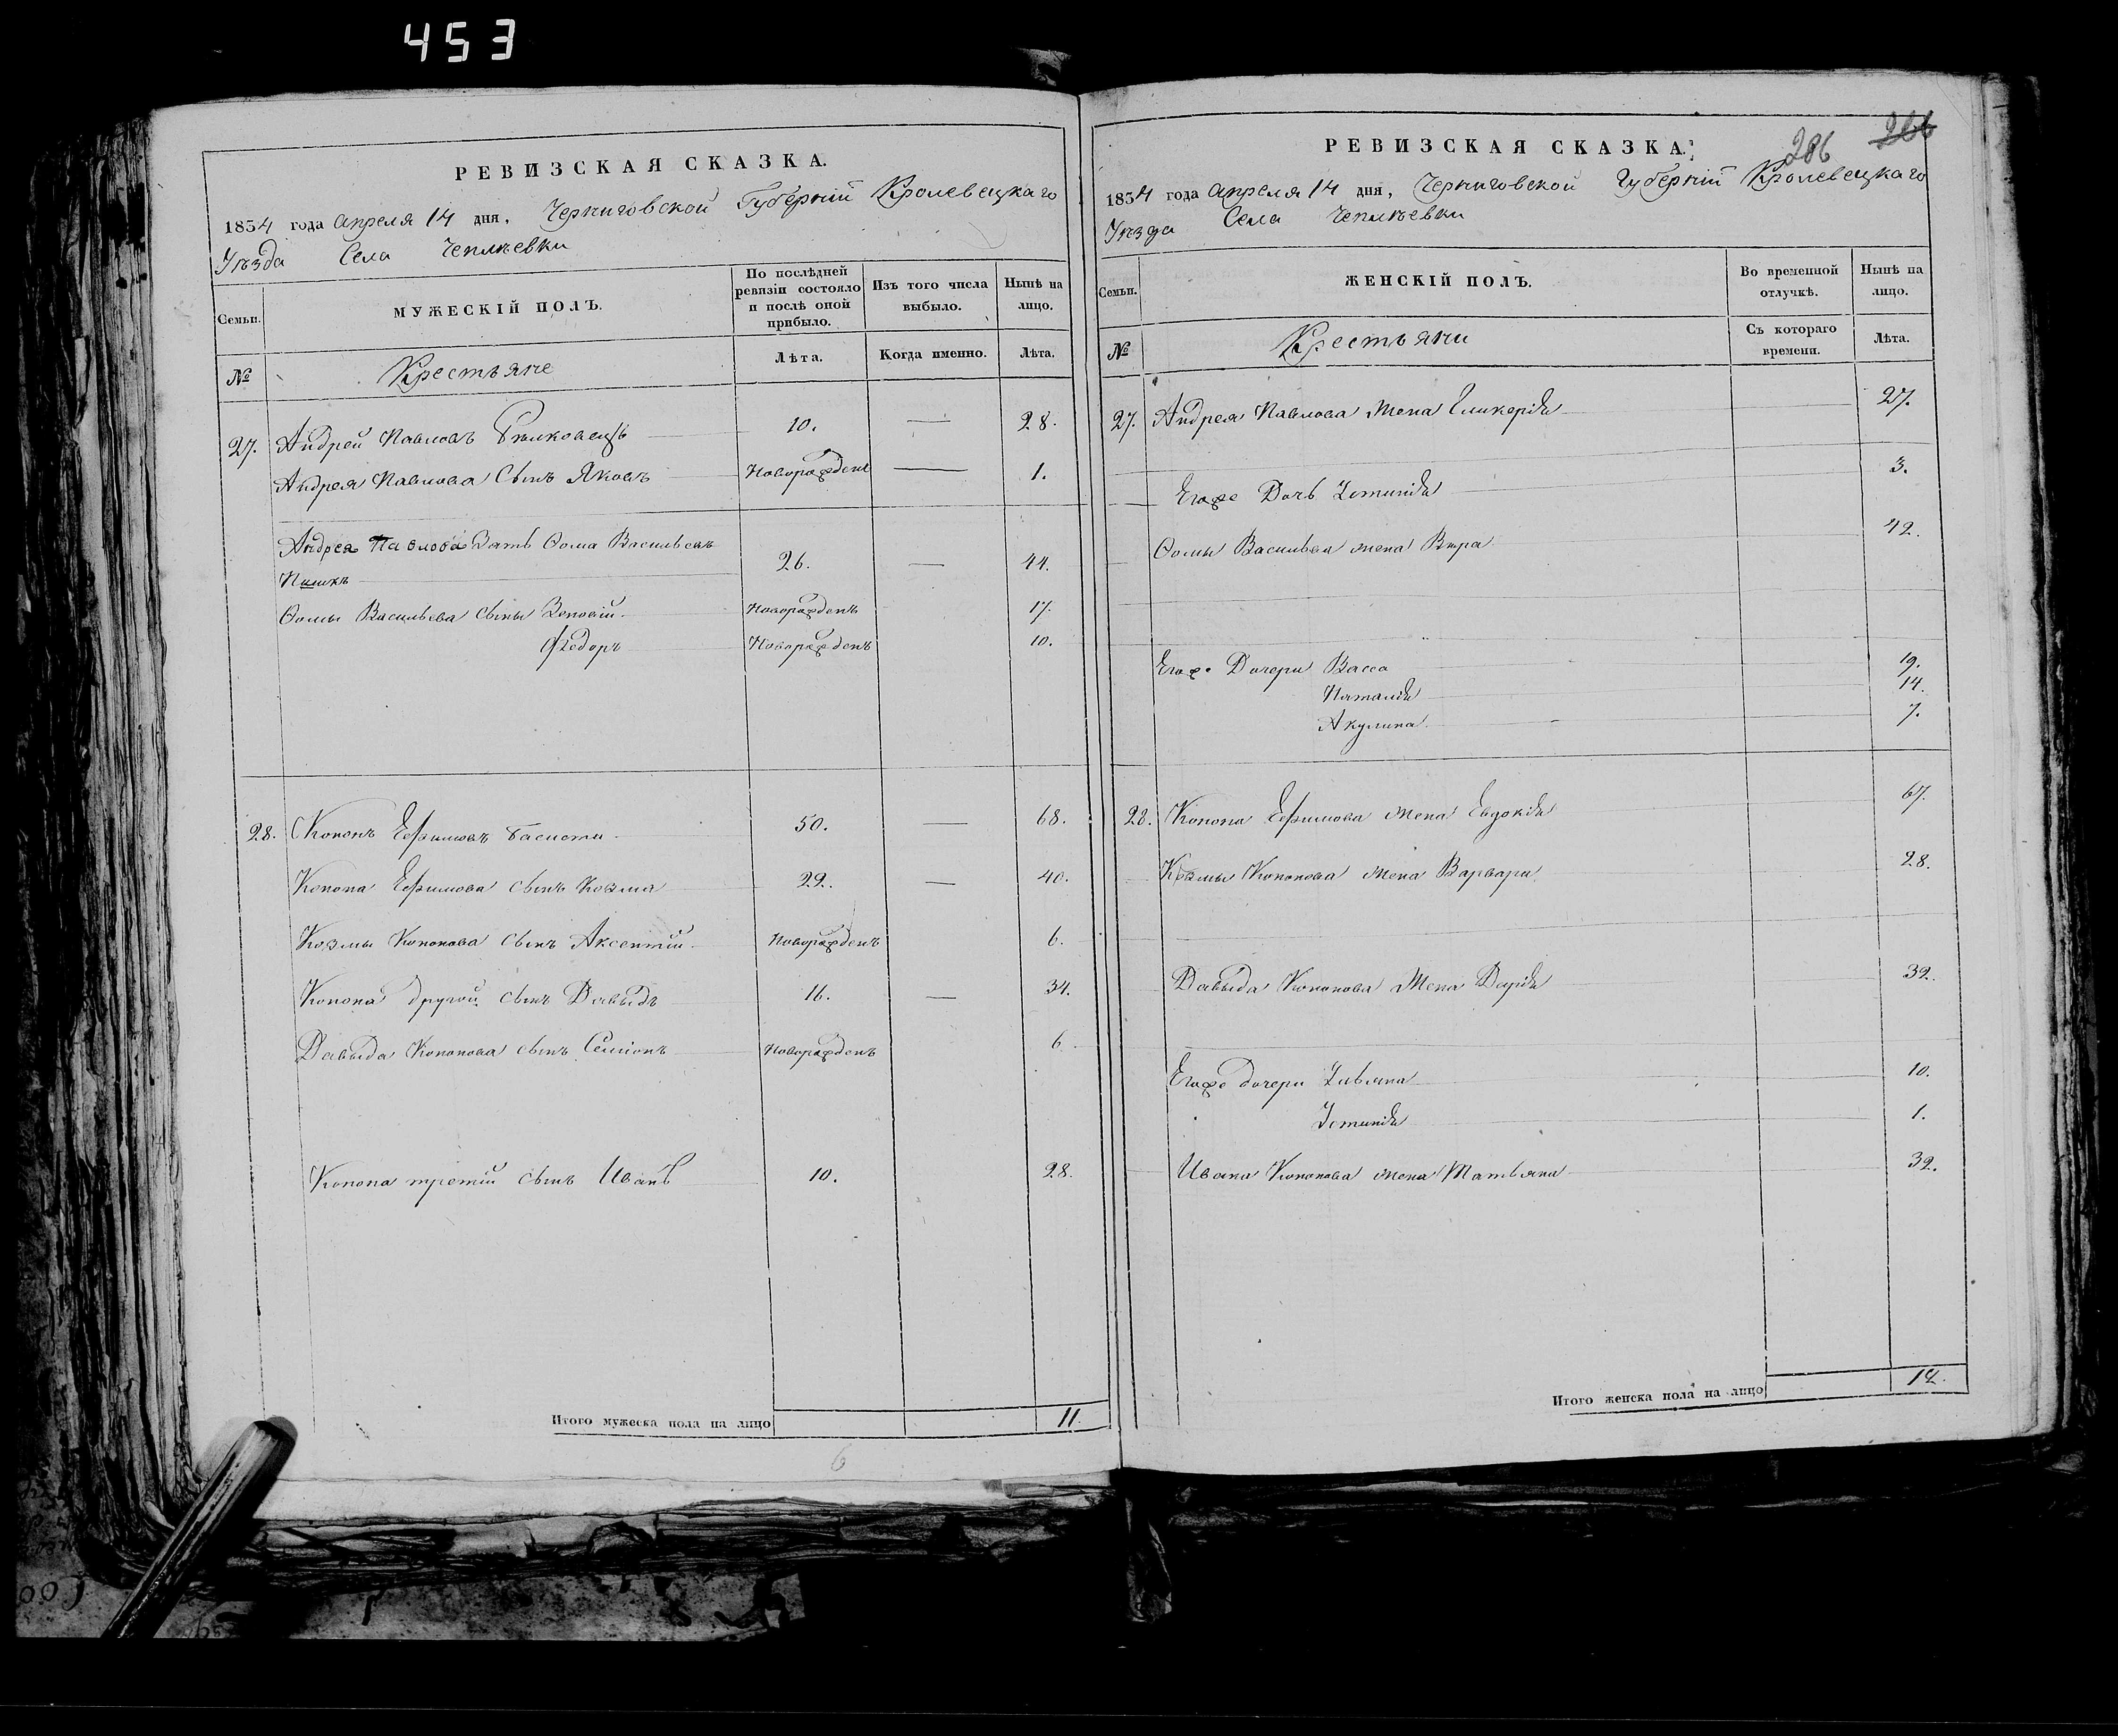 453
РЕВИЗСКАЯ СКАЗКА.
1854 года Апреля 14 дня, Черниговской Губерніи Кролевецкаго
Уѣзда Села Чеплѣевки
Семьи.
МУЖЕСКІЙ ПОЛЪ.
По послѣдней ревизіи состояло и послѣ оной прибыло.
Изъ того числа выбыло.
Нынѣ на лицо.
№
Крестьяне
Лѣта.
Когда именно.
Лѣта.
27. Андрей Павловъ 10. — 28.
Андрея Павлова Сынъ Яковъ Новорожденъ — 1.
Андрея Павлова Зять Ѳома Васильевъ
26. — 44.
Ѳомы Васильева сыны Зеновій Новорожденъ 17.
Федоръ Новорожденъ 10.
28. Кононъ Ефимовъ 50. — 68.
Конона Ефимова сынъ Козма 22. — 40.
Козмы Кононова сынъ Аксентій Новорожденъ 6.
Конона другой сынъ Давыдъ 16. — 34.
Давыда Кононова сынъ Семіонъ Новорожденъ 6
Конона третій сынъ Иванъ 10. 28.
Итого мужеска пола на лицо 11.
6
286
РЕВИЗСКАЯ СКАЗКА.
1854 года Апреля 14 дня, Черниговской Губерніи Кролевецкаго
Уѣзда Села Чеплѣевки
Семьи.
ЖЕНСКІЙ ПОЛЪ.
Во временной отлучкѣ.
Нынѣ на лицо.
№
Крестьяни
Съ котораго времени.
Лѣта.
27. Андрея Павлова жена Гликерія 27.
Его же Дочь Устинія 3.
Ѳомы Васильева жена Вѣра 42.
Его же Дочери Васса 19.
Наталія 14.
Акулина 7.
28. Конона Ефимова жена Евдокія 67.
Козмы Кононова жена Варвара 28.
Давыда Кононова жена Дарія 32.
Его же дочери 10.
Устинія 1.
Ивана Кононова жена Татьяна 32.
Итого женска пола на лицо 12.